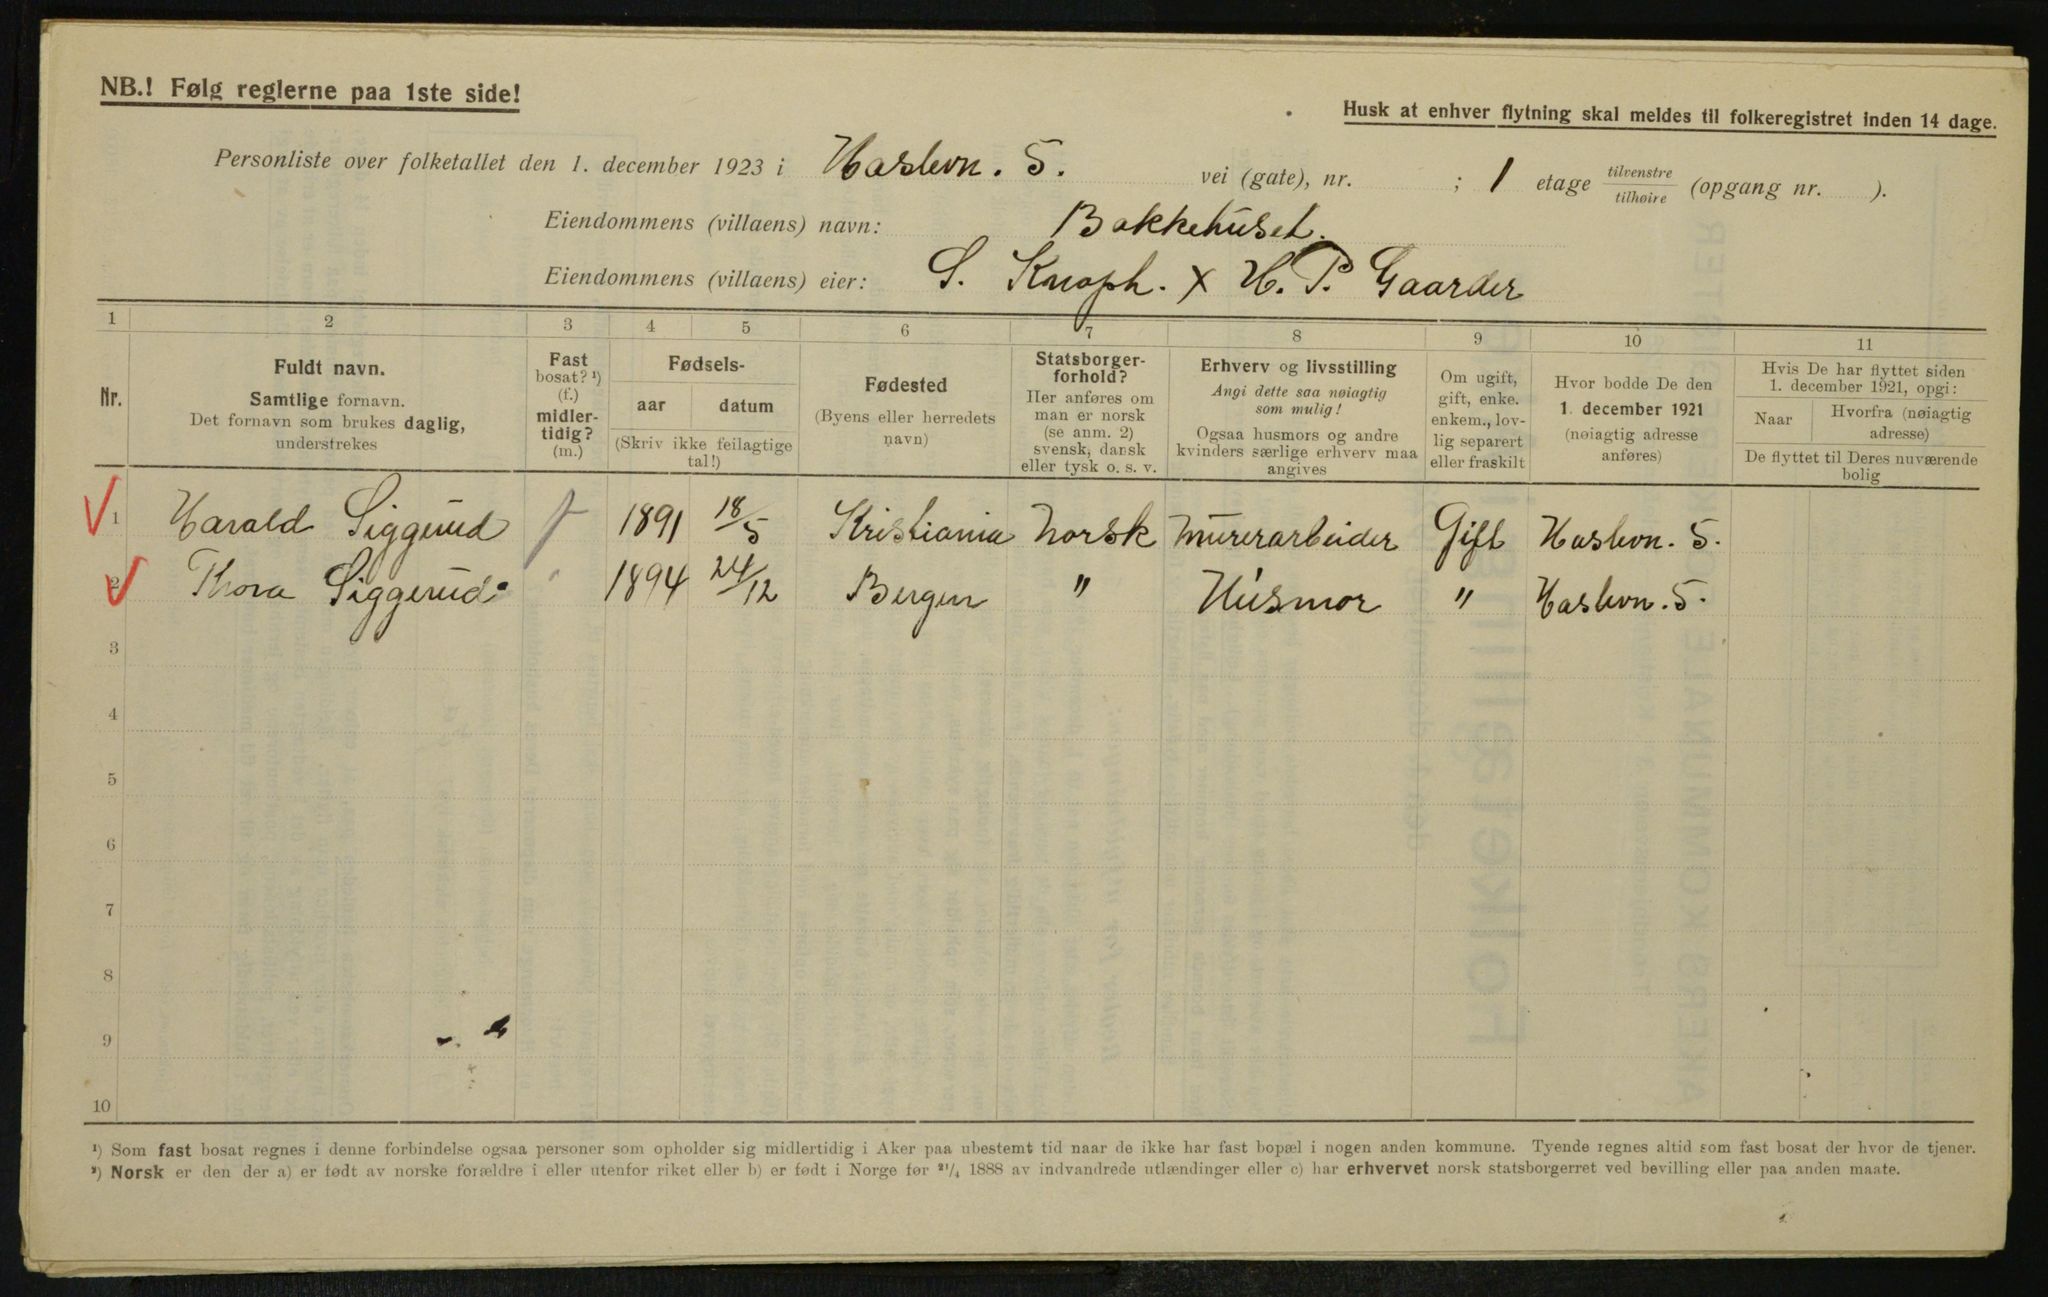 NB.! Følg reglerne paa 1ste side!
Husk at enhver flytning skal meldes til folkeregistret inden 14 dage.
Personliste over folketallet den 1. december 1923 i Haslevn. 5. vei (gate), nr. ; 1 etage tilvenstre/tilhøire (opgang nr. ).
Eiendommens (villaens) navn: Bakkehuset.
Eiendommens (villaens) eier: S. Knoph. x H. P. Gaarder
1 2 3 4 5 6 7 8 9 10 11
Nr.
Fuldt navn.
Samtlige fornavn.
Det fornavn som brukes daglig,
understrekes
Fast
bosat? ¹)
(f.)
midler-
tidig?
(m.)
Fødsels-
aar datum
(Skriv ikke feilagtige
tal!)
Fødested
(Byens eller herredets
navn)
Statsborger-
forhold?
Her anføres om
man er norsk
(se anm. 2)
svensk, dansk
eller tysk o. s. v.
Erhverv og livsstilling
Angi dette saa nøiagtig
som mulig!
Ogsaa husmors og andre
kvinders særlige erhverv maa
angives
Om ugift,
gift, enke.
enkem., lov-
lig separert
eller fraskilt
Hvor bodde De den
1. december 1921
(nøiagtig adresse
anføres)
Hvis De har flyttet siden
1. december 1921, opgi:
Naar Hvorfra (nøiagtig
adresse)
De flyttet til Deres nuværende
bolig
1 Harald Siggerud f 1891 18/5 Kristiania Norsk Murerarbeider Gift Haslevn. 5.
2 Thora Siggerud " 1894 24/12 Bergen " Husmor " Haslevn. 5.
3
4
5
6
7
8
9
10
¹) Som fast bosat regnes i denne forbindelse ogsaa personer som opholder sig midlertidig i Aker paa ubestemt tid naar de ikke har fast bopæl i nogen anden kommune. Tyende regnes altid som fast bosat der hvor de tjener.
²) Norsk er den der a) er født av norske forældre i eller utenfor riket eller b) er født i Norge før ²¹/₄ 1888 av indvandrede utlændinger eller c) har erhvervet norsk statsborgerret ved bevilling eller paa anden maate.